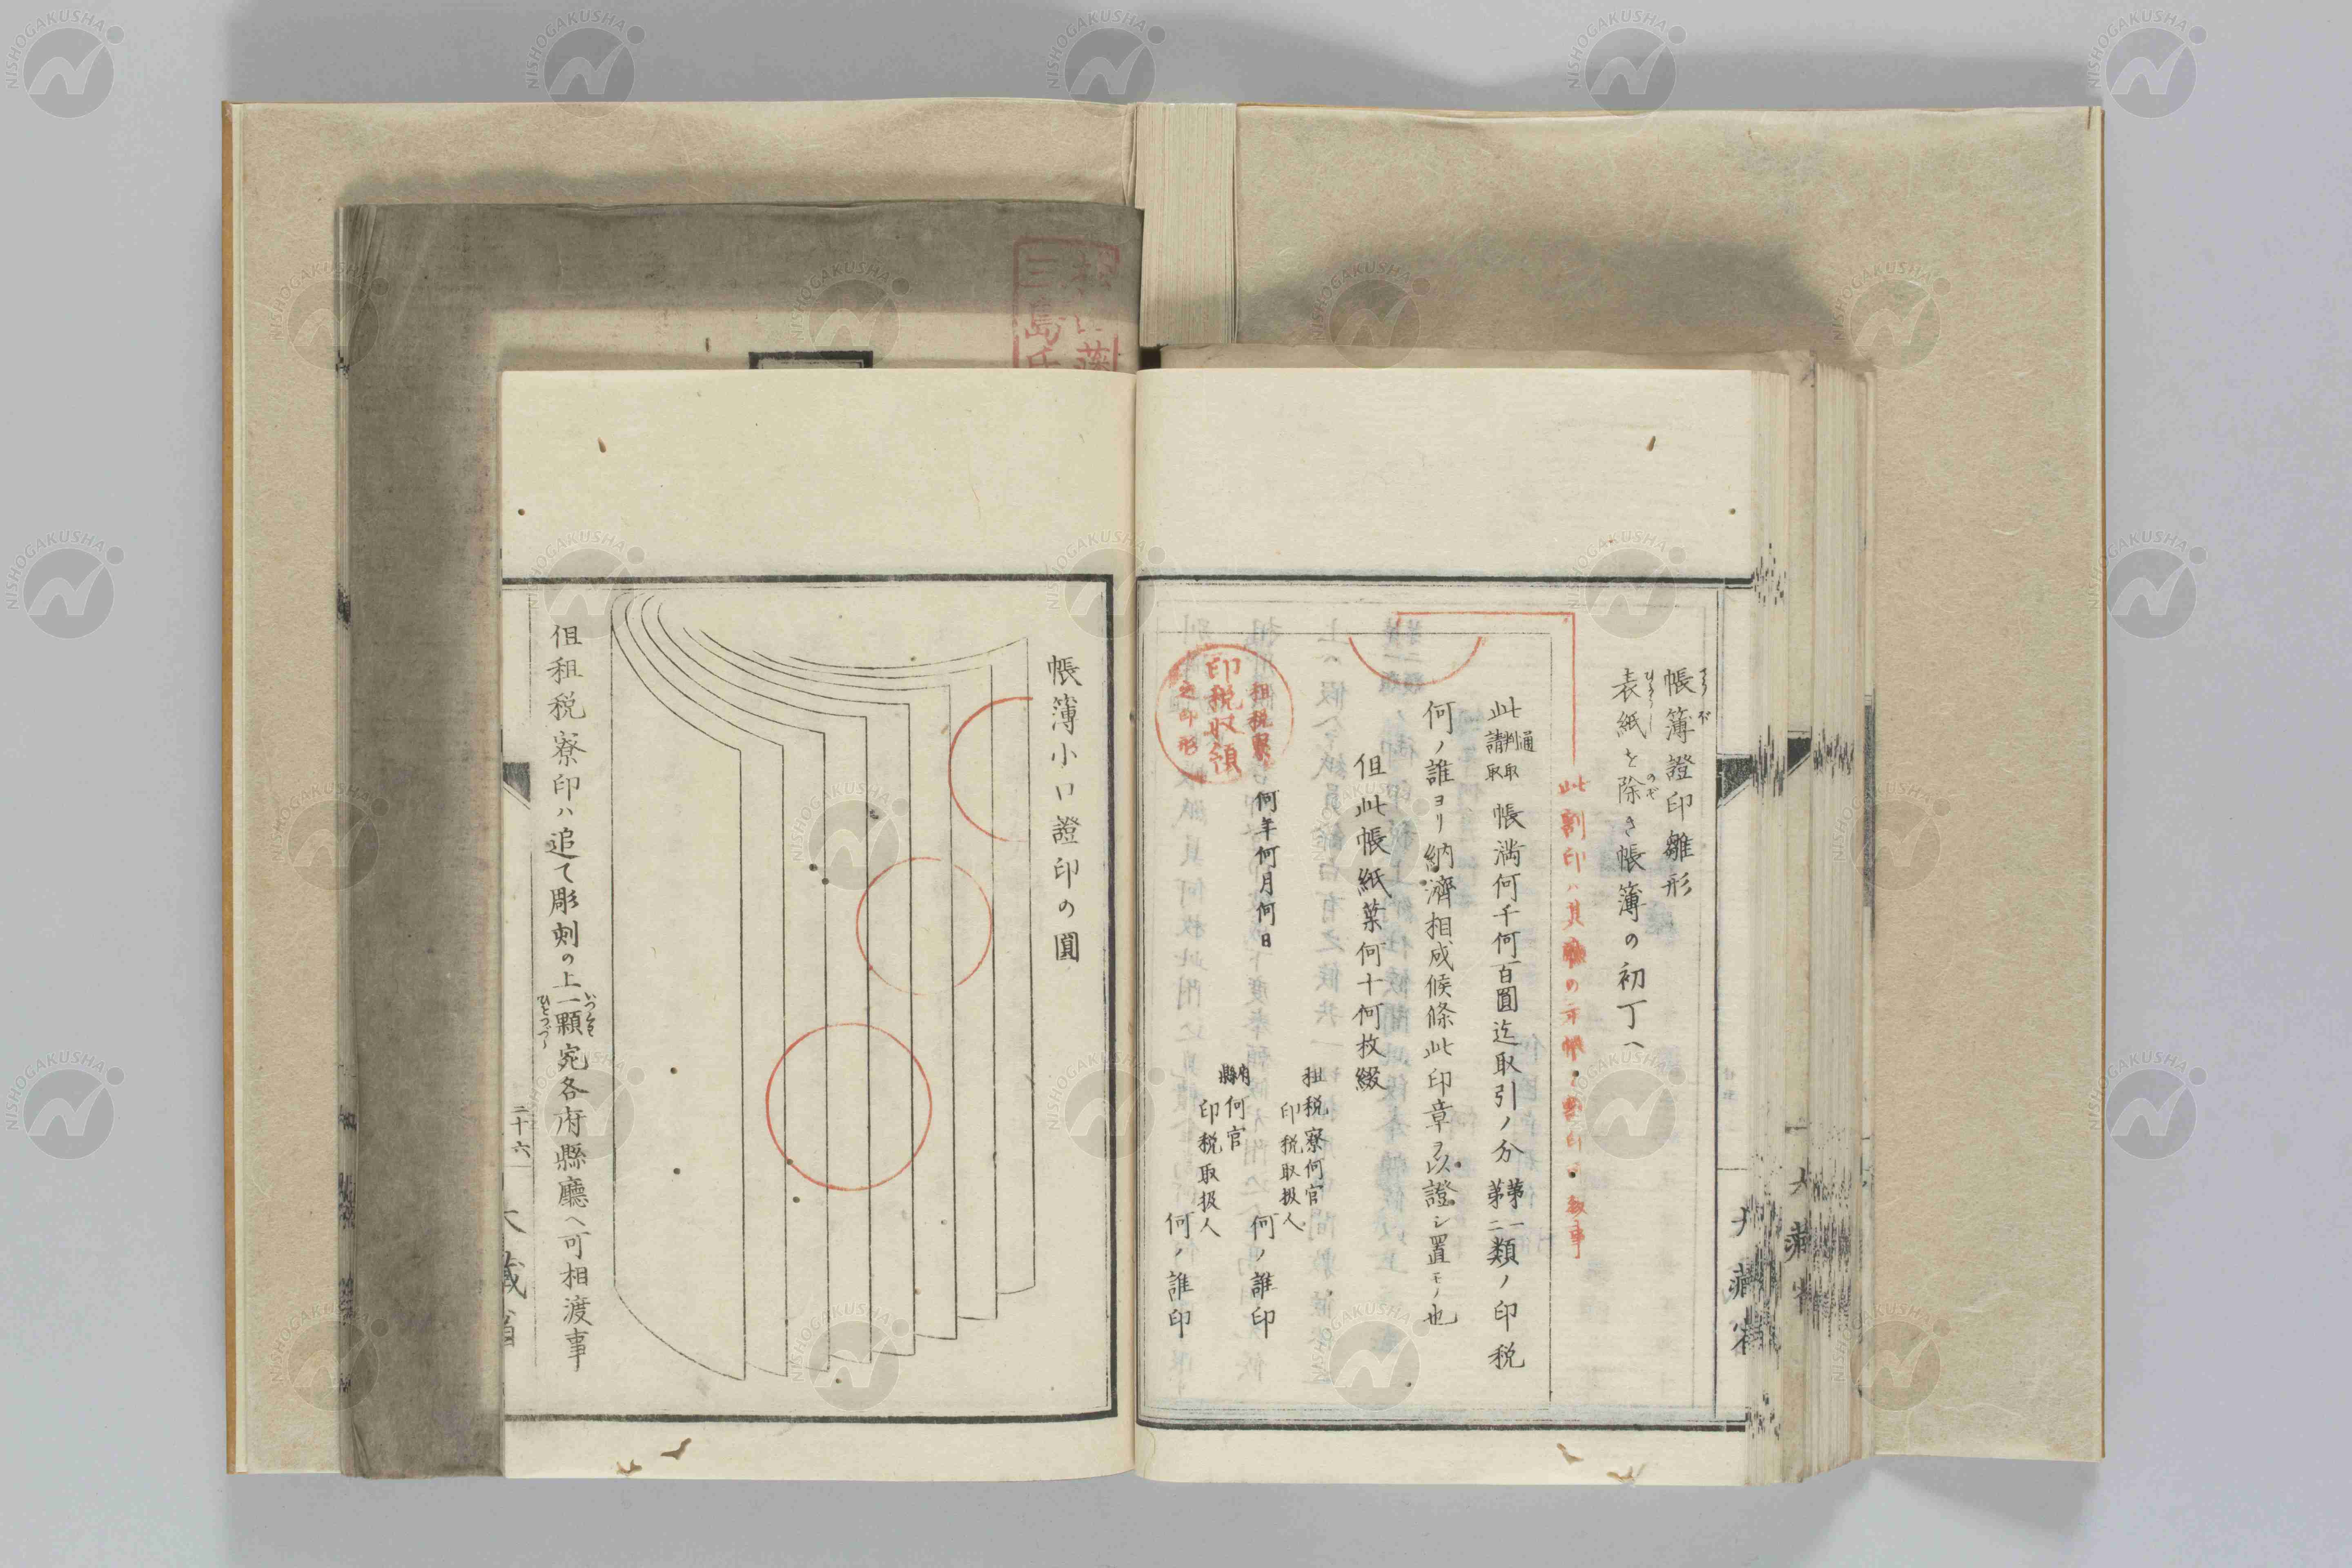 帳簿證印雛形
表紙を除き帳簿の初丁へ
此割印ハ其
割印
事
此通判取請取帳満何千何百圓迄取引ノ分第一第二類ノ印税
何ノ誰ヨリ納濟相成候條此印章ヲ以證シ置モノ也
但此帳紙葉何十何枚綴
租税寮
印税収領
之印形
何年何月何日
租税寮何官
印税取扱人
何ノ誰印
縣何官
印税取扱人
何ノ誰印
大藏省
帳簿小口證印の圖
但租税寮印ハ追て彫刻の上一顆宛各府縣廳へ可相渡事
二十六
大藏省
三島氏
NISHOGAKUSHA